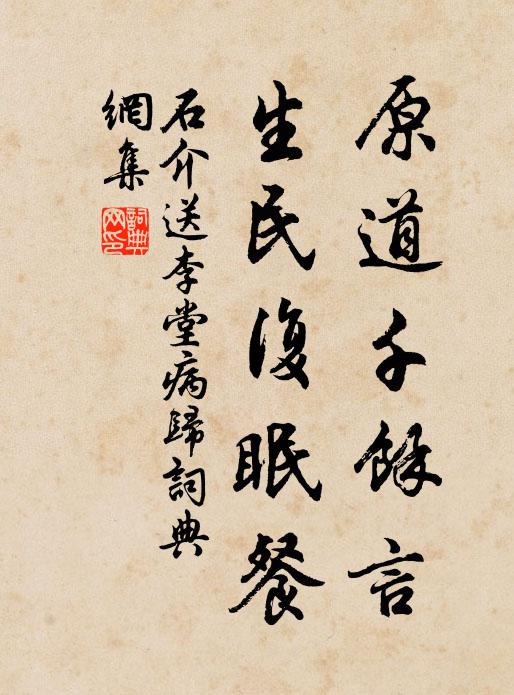 原道千餘言
生民復眠餐
石介送李堂病歸詞典
網集
詞典網印